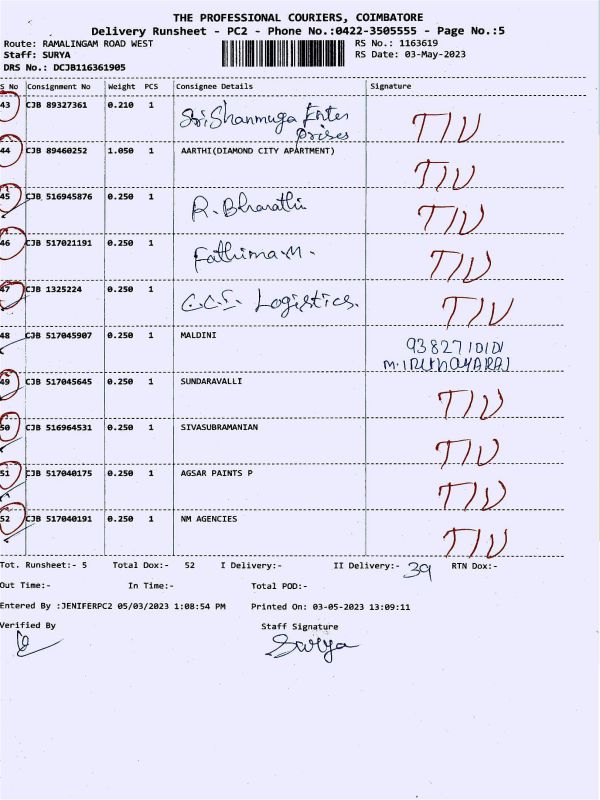 THE PROFESSIONAL COURIERS, COIMBATORE
Delivery Runsheet - PC2 - Phone No.:0422-3505555 - Page No.:5
Route: RAMALINGAM ROAD WEST RS No.: 1163619
Staff: SURYA RS Date: 03-May-2023
DRS No.: DCJB116361905
S No Consignment No Weight PCS Consignee Details Signature
43 CJB 89327361 0.210 1 Sri Shanmuga Enter T/U
prises
44 CJB 89460252 1.050 1 AARTHI(DIAMOND CITY APARTMENT) T/U
45 CJB 516945876 0.250 1 R. Bharathi T/U
46 CJB 517021191 0.250 1 Fathima.M. T/U
47 CJB 1325224 0.250 1 Logistics. T/U
48 CJB 517045907 0.250 1 MALDINI 9382710101
49 CJB 517045645 0.250 1 SUNDARAVALLI T/U
50 CJB 516964531 0.250 1 SIVASUBRAMANIAN T/U
51 CJB 517040175 0.250 1 AGSAR PAINTS P T/U
52 CJB 517040191 0.250 1 NM AGENCIES T/U
Tot. Runsheet:- 5 Total Dox:- 52 I Delivery:- II Delivery:- 39 RTN Dox:-
Out Time:- In Time:- Total POD:-
Entered By :JENIFERPC2 05/03/2023 1:08:54 PM Printed On: 03-05-2023 13:09:11
Verified By Staff Signature
Surya